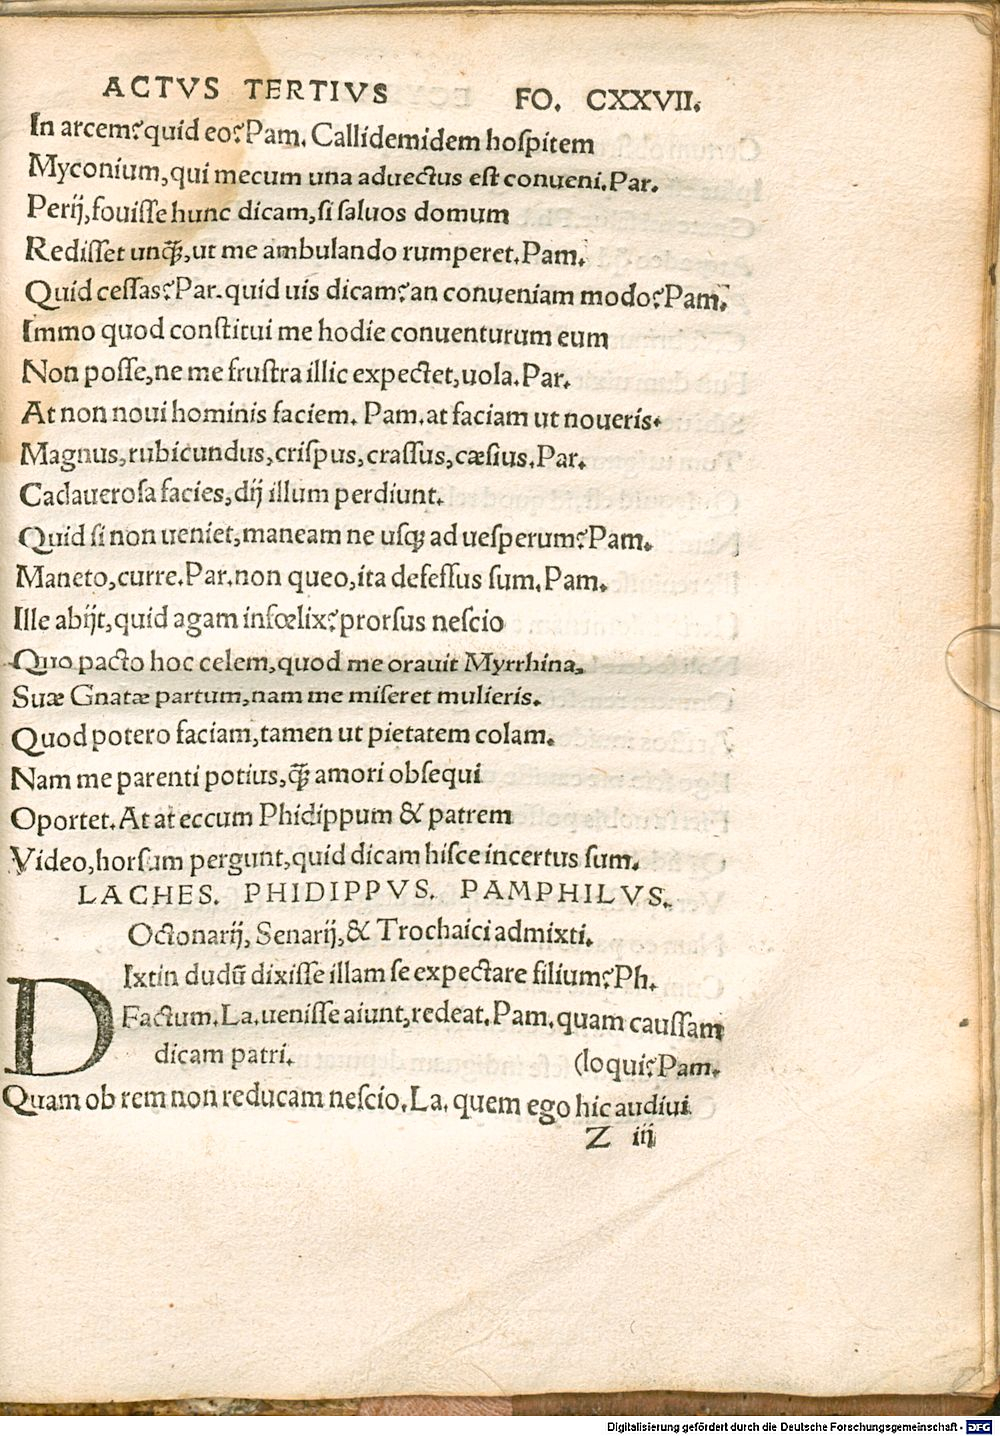 ACTVS TERTIVS FO. CXXVII.
In arcem? quid eo? Pam. Callidemidem hoſpitem
Myconium, qui mecum una aduectus eſt conueni. Par.
Perij, fouiſſe hunc dicam, ſi ſaluos domum
Rediſſet unꝙ̃, ut me ambulando rumperet. Pam.
Quid ceſſas? Par. quid uis dicam? an conueniam modo? Pam.
Immo quod conſtitui me hodie conuenturum eum
Non poſſe, ne me fruſtra illic expectet, uola. Par.
At non noui hominis faciem. Pam. at faciam ut noueris.
Magnus, rubicundus, criſpus, craſſus, cæſius. Par.
Cadaueroſa facies, dij illum perdiunt.
Quid ſi non ueniet, maneam ne uſꝗ ad ueſperum? Pam.
Maneto, curre. Par. non queo, ita defeſſus ſum. Pam.
Ille abijt, quid agam infœlix? prorſus neſcio
Quo pacto hoc celem, quod me orauit Myrrhina,
Suæ Gnatæ partum, nam me miſeret mulieris.
Quod potero faciam, tamen ut pietatem colam.
Nam me parenti potius, ꝙ̃ amori obſequi
Oportet. At at eccum Phidippum & patrem
Video, horſum pergunt, quid dicam hiſce incertus ſum.
LACHES. PHIDIPPVS. PAMPHILVS.
Octonarij, Senarij, & Trochaici admixti.
DIxtin dudũ dixiſſe illam ſe expectare filium? Ph.
Factum. La. ueniſſe aiunt, redeat. Pam. quam cauſſam
dicam patri. (loqui? Pam.
Quam ob rem non reducam neſcio. La. quem ego hic audiui
Z iij
Digitalisierung gefördert durch die Deutsche Forschungsgemeinschaft - DFG